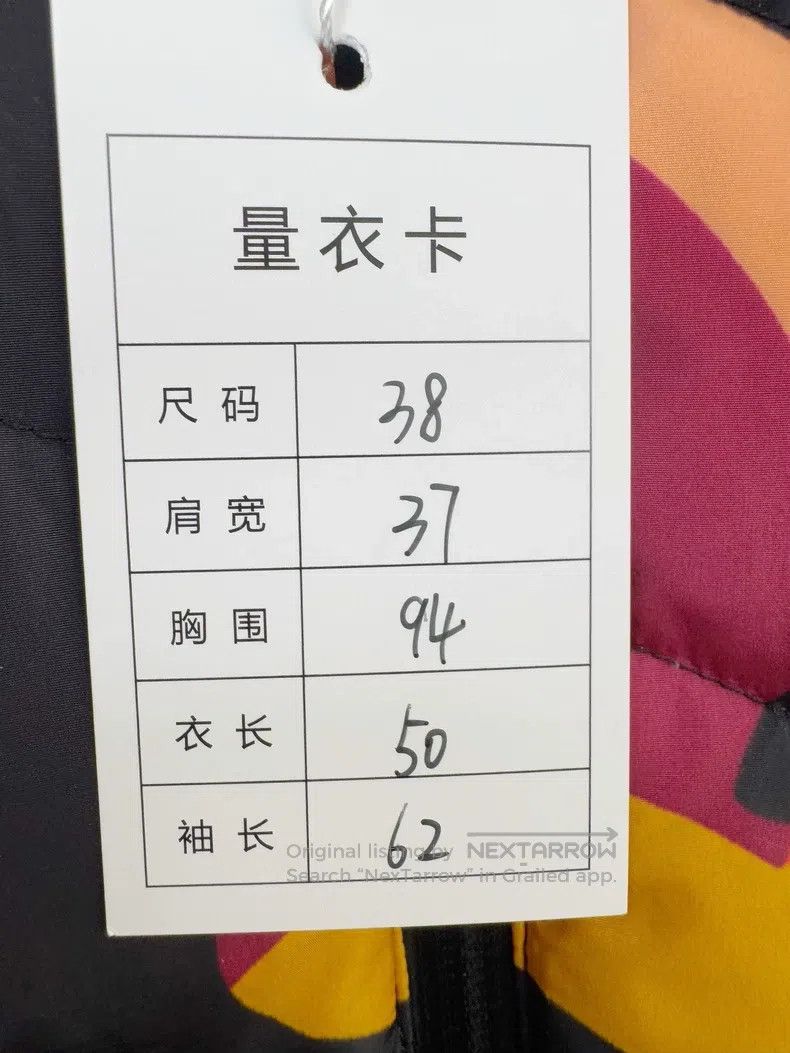 量衣卡
尺码 38
肩宽 37
胸围 94
衣长 50
袖长 62
Original listing by NEXTARROW
Search "NexTarrow" in Grailed app.